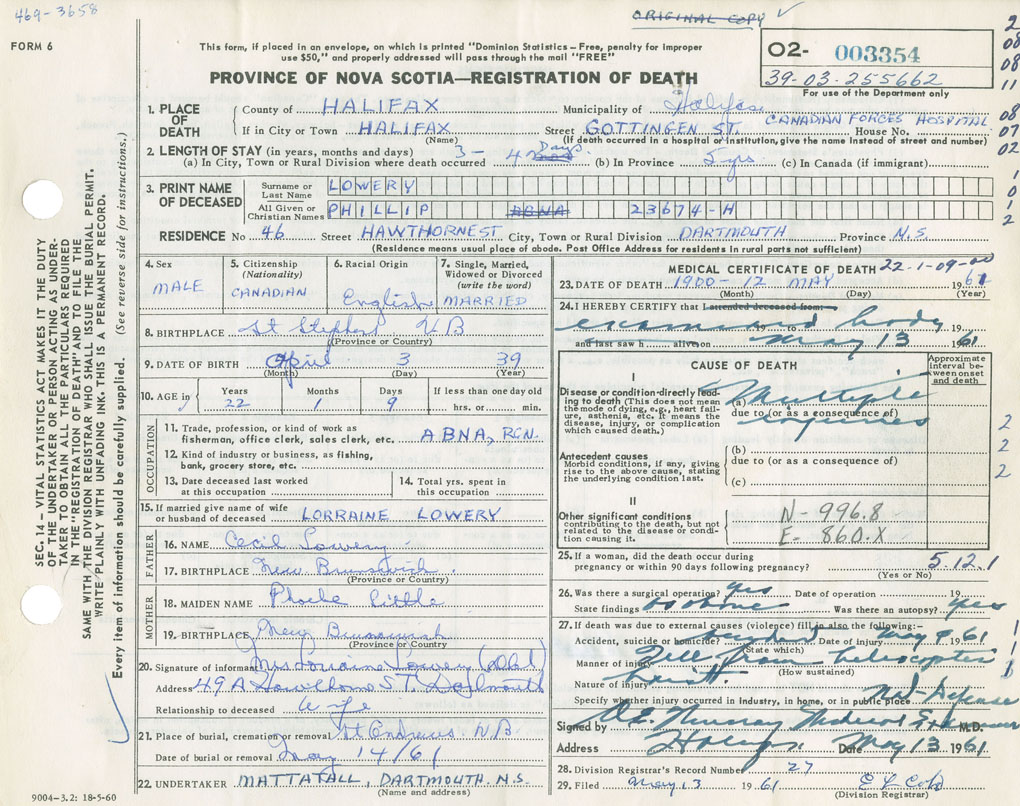 469-3658
ORIGINAL COPY
FORM 6
This form, if placed in an envelope, on which is printed "Dominion Statistics – Free, penalty for improper
use $50," and properly addressed will pass through the mail "FREE"
O2- 003354
39-03-255662
For use of the Department only
PROVINCE OF NOVA SCOTIA—REGISTRATION OF DEATH
1. PLACE OF DEATH
County of HALIFAX Municipality of Halifax
CANADIAN FORCES HOSPITAL
If in City or Town HALIFAX Street GOTTINGEN ST. House No.
(Name) (If death occurred in a hospital or institution, give the name instead of street and number)
2. LENGTH OF STAY (in years, months and days)
(a) In City, Town or Rural Division where death occurred 3-4 Days (b) In Province 5 yrs (c) In Canada (if immigrant)
3. PRINT NAME OF DECEASED
Surname or Last Name LOWERY
All Given or Christian Names PHILLIP ABNA 23674-H
RESIDENCE No 46 Street HAWTHORNEST City, Town or Rural Division DARTMOUTH Province N.S.
(Residence means usual place of abode. Post Office Address for residents in rural parts not sufficient)
4. Sex MALE
5. Citizenship (Nationality) CANADIAN
6. Racial Origin English
7. Single, Married, Widowed or Divorced (write the word) MARRIED
8. BIRTHPLACE St Stephen NB
(Province or Country)
9. DATE OF BIRTH April 3 39
(Month) (Day) (Year)
10. AGE in Years 22 Months 1 Days 9 If less than one day old hrs. or min.
OCCUPATION
11. Trade, profession, or kind of work as
fisherman, office clerk, sales clerk, etc. ABNA, RCN.
12. Kind of industry or business, as fishing,
bank, grocery store, etc.
13. Date deceased last worked
at this occupation
14. Total yrs. spent in
this occupation
15. If married give name of wife
or husband of deceased LORRAINE LOWERY
FATHER
16. NAME Cecil Lowery
17. BIRTHPLACE New Brunswick.
(Province or Country)
MOTHER
18. MAIDEN NAME Phoebe Little
19. BIRTHPLACE New Brunswick
(Province or Country)
20. Signature of informant Mrs Lorraine Lowery
Address 49 A Hawthorne ST. Dartmouth
Relationship to deceased wife
21. Place of burial, cremation or removal St Andrews N.B
Date of burial or removal May 14/61
22. UNDERTAKER MATTATALL, DARTMOUTH, N.S.
(Name and address)
9004–3.2: 18-5-60
MEDICAL CERTIFICATE OF DEATH 22-1-09-00
23. DATE OF DEATH 1900-12 MAY 1961
(Month) (Day) (Year)
24. I HEREBY CERTIFY that I attended deceased from
examined body
19 to 19
and last saw h alive on May 13 1961
CAUSE OF DEATH
Approximate interval between onset and death
I
Disease or condition directly leading to death (This does not mean the mode of dying, e.g., heart failure, asthenia, etc. It means the disease, injury, or complication which caused death.)
(a) Multiple
due to (or as a consequence of)
injuries
Antecedent causes
Morbid conditions, if any, giving rise to the above cause, stating the underlying condition last.
(b)
due to (or as a consequence of)
(c)
II
Other significant conditions
contributing to the death, but not related to the disease or condition causing it.
N-996.8
E-860.X
25. If a woman, did the death occur during
pregnancy or within 90 days following pregnancy? 5.12.1
(Yes or No)
26. Was there a surgical operation? yes Date of operation 19
State findings as above Was there an autopsy? yes
27. If death was due to external causes (violence) fill in also the following:-
Accident, suicide or homicide? accident Date of injury May 9 61
(State which)
Manner of injury Fell from helicopter
(How sustained)
Nature of injury
Specify whether injury occurred in Industry, in home, or in public place Nat. Defence
Signed by Murray M.D.
Address Halifax Date May 13 1961
28. Division Registrar's Record Number 27
29. Filed May 13 1961
(Division Registrar)
SEC. 14 – VITAL STATISTICS ACT MAKES IT THE DUTY
OF THE UNDERTAKER OR PERSON ACTING AS UNDER-
TAKER TO OBTAIN ALL THE PARTICULARS REQUIRED
IN THE "REGISTRATION OF DEATH" AND TO FILE THE
SAME WITH THE DIVISION REGISTRAR WHO SHALL ISSUE THE BURIAL PERMIT.
WRITE PLAINLY WITH UNFADING INK. THIS IS A PERMANENT RECORD.
Every item of information should be carefully supplied. (See reverse side for instructions.)
2
08
08
11
08
07
02
1
0
1
2
2
2
2
1
1